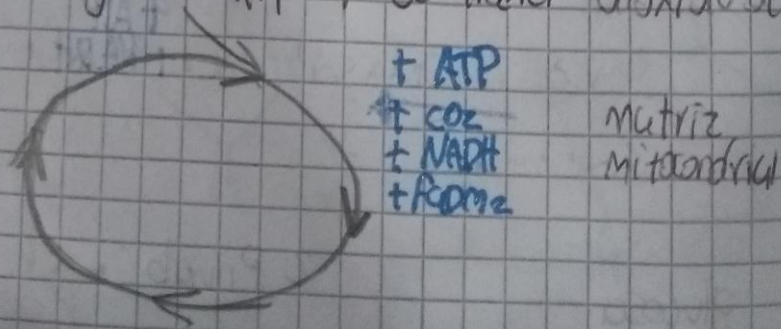 + ATP
+ CO2
+ NADH
+ FADH2
Matriz
Mitocondrial